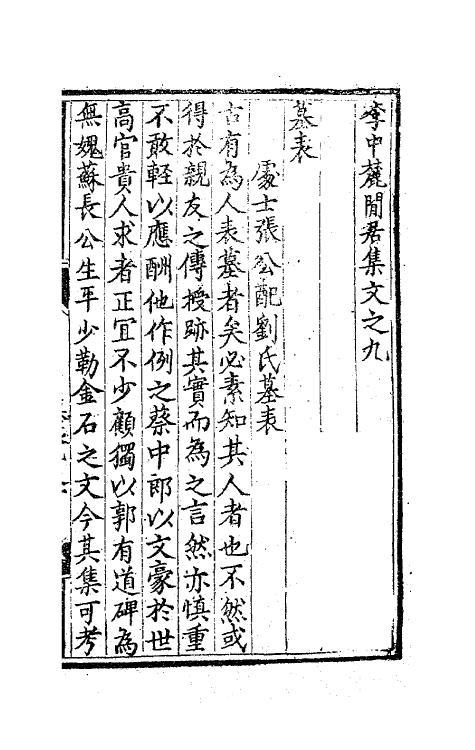 李中麓閒居集文之九
墓表
處士張公配劉氏墓表
古有為人表墓者矣必素知其人者也不然或
得於親友之傳授跡其實而為之言然亦慎重
不敢輕以應酬他作例之蔡中郎以文豪於世
高官貴人求者正宜不少顧獨以郭有道碑為
無媿蘇長公生平少勒金石之文今其集可考